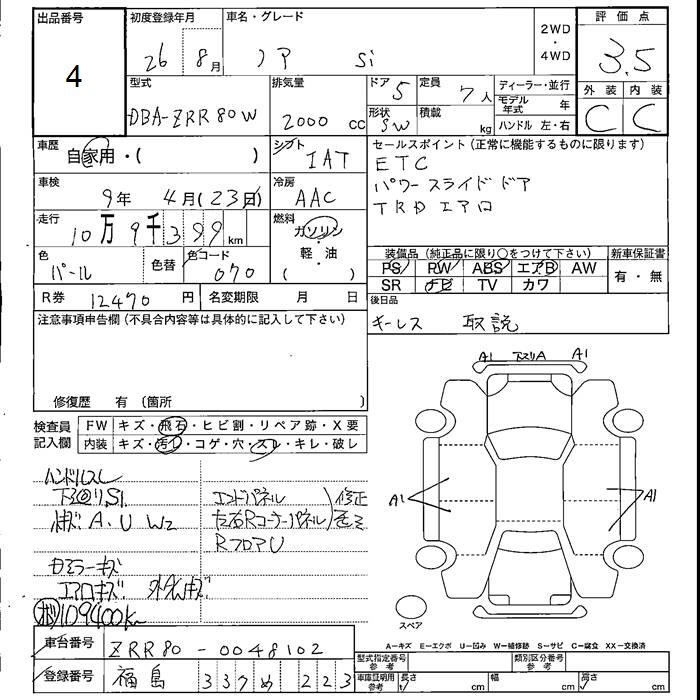 出品番号
4
初度登録年月
26 8月
車名・グレード
ノア Si
2WD
・
4WD
評価点
3.5
外装 内装
C C
型式
DBA-ZRR80W
排気量
2000 cc
ドア 5
形状 SW
定員 7人
積載 kg
ディーラー・並行
モデル年式 年
ハンドル 左・右
車歴
自家用・( )
シフト
IAT
車検
9年 4月(23日)
冷房
AAC
走行
10万9千399 km
燃料
ガソリン
・
軽・油
( )
色
パール
色替
色コード
070
R券 12470 円
名変期限 月 日
セールスポイント(正常に機能するものに限ります)
ETC
パワースライドドア
TRD エアロ
装備品(純正品に限り○をつけて下さい)
新車保証書
PS PW ABS エアB AW
SR ナビ TV カワ
有・無
後日品
キーレス 取説
注意事項申告欄(不具合内容等は具体的に記入して下さい)
修復歴 有(箇所 )
検査員
記入欄
FW キズ・飛石・ヒビ割・リペア跡・X要
内装 キズ・汚れ・コゲ・穴・スレ・キレ・破レ
ハンドルスレ
下廻りS1
小キズ A.U W2
エンドパネル
左右Rコーナーパネル
RフロアU
修正
ミラーキズ
エアロキズ
109400K
A1 下スリA A1
A1
A1
スペア
A-キズ E-エクボ U-凹み W-補修跡 S-サビ C-腐食 XX-交換済
車台番号 ZRR80-0048102
登録番号 福島 337 め 223
型式指定番号
参考
類別区分番号
参考
車庫証明用
参考
長さ cm
幅 cm
高さ cm